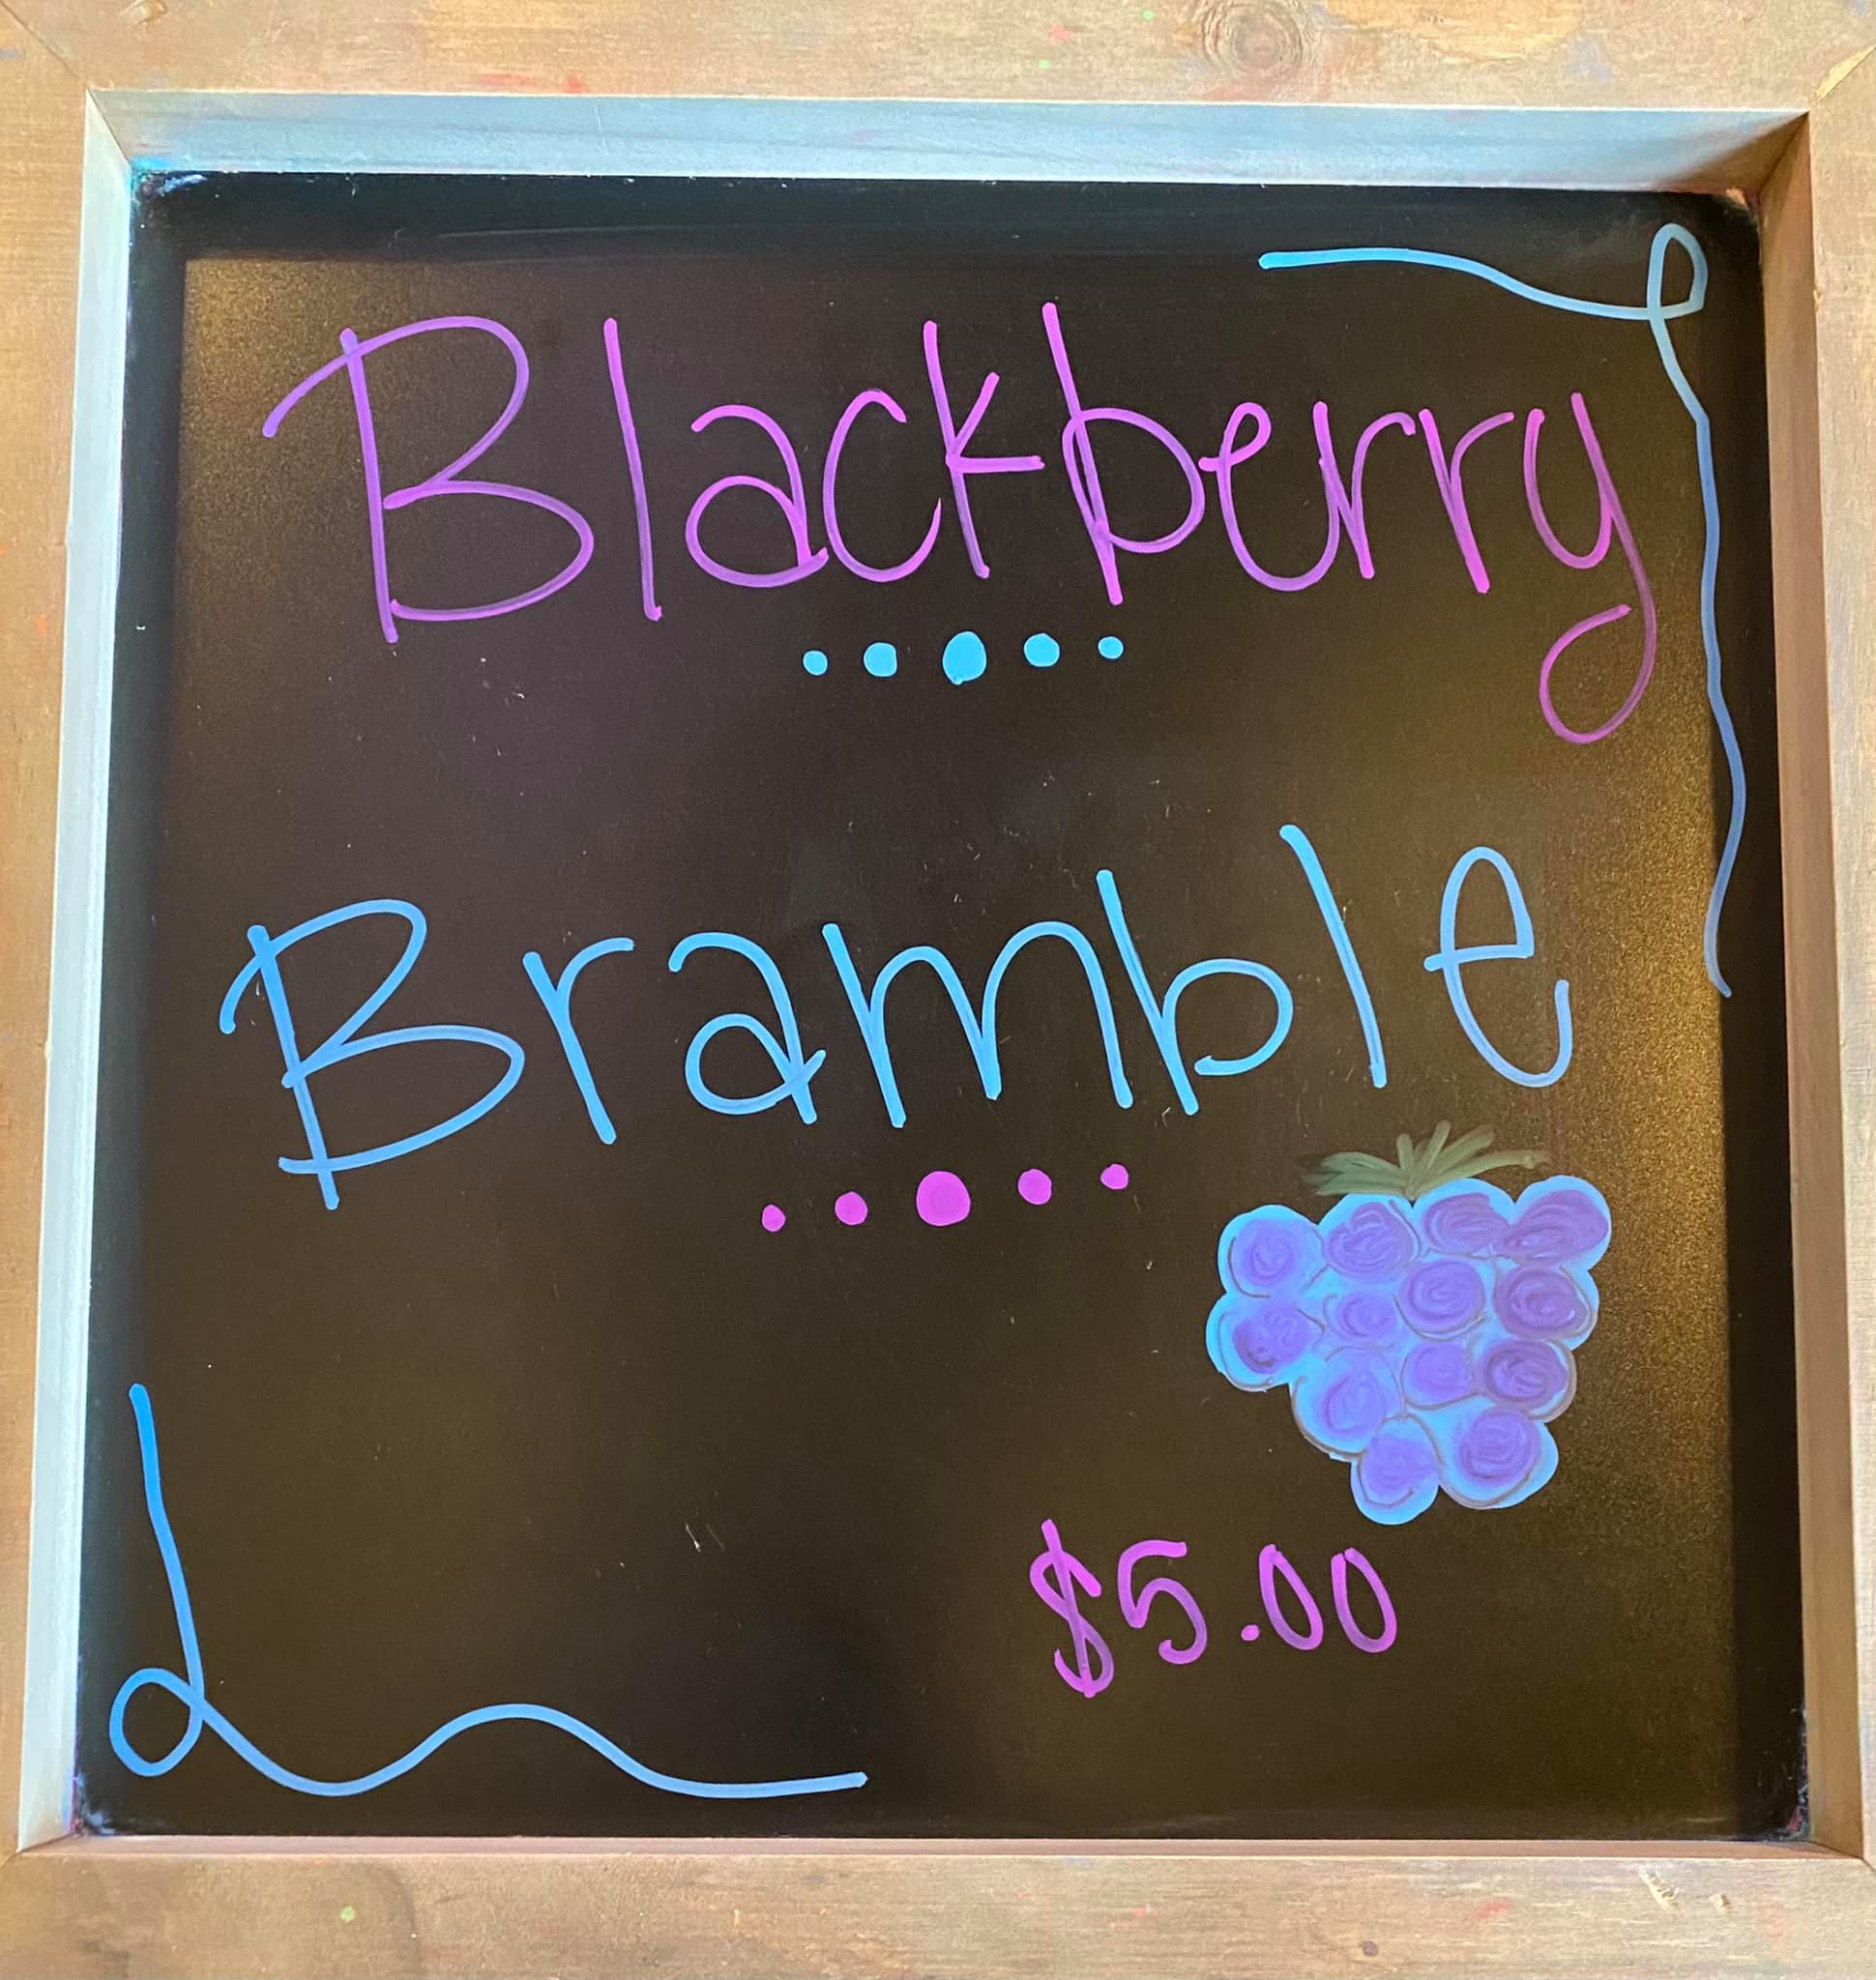 Blackberry
Bramble
$5.00